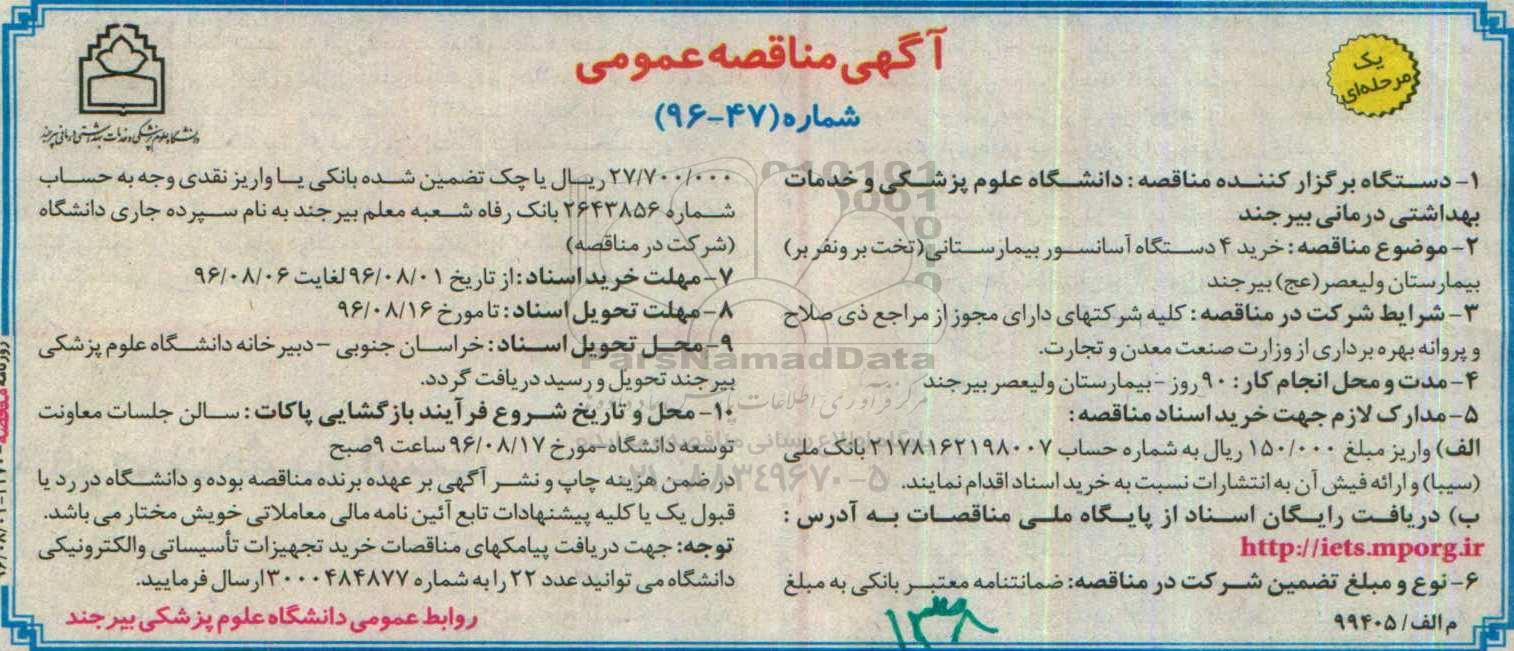 آگهی مناقصه عمومی
شماره (۴۷-۹۶)
یک
مرحله‌ای
دانشگاه علوم پزشکی و خدمات بهداشتی درمانی بیرجند
۱- دستگاه برگزار کننده مناقصه: دانشگاه علوم پزشکی و خدمات
بهداشتی درمانی بیرجند
۲- موضوع مناقصه: خرید ۴ دستگاه آسانسور بیمارستانی (تخت بر و نفر بر)
بیمارستان ولیعصر (عج) بیرجند
۳- شرایط شرکت در مناقصه: کلیه شرکتهای دارای مجوز از مراجع ذی صلاح
و پروانه بهره برداری از وزارت صنعت معدن و تجارت.
۴- مدت و محل انجام کار: ۹۰ روز - بیمارستان ولیعصر بیرجند
۵- مدارک لازم جهت خرید اسناد مناقصه:
الف) واریز مبلغ ۱۵۰/۰۰۰ ریال به شماره حساب ۲۱۷۸۱۶۲۱۹۸۰۰۷ بانک ملی
(سیبا) و ارائه فیش آن به انتشارات نسبت به خرید اسناد اقدام نمایند.
ب) دریافت رایگان اسناد از پایگاه ملی مناقصات به آدرس:
http://iets.mporg.ir
۶- نوع و مبلغ تضمین شرکت در مناقصه: ضمانتنامه معتبر بانکی به مبلغ
م الف/ ۹۹۴۰۵
۲۷/۷۰۰/۰۰۰ ریال یا چک تضمین شده بانکی یا واریز نقدی وجه به حساب
شماره ۲۶۴۳۸۵۶ بانک رفاه شعبه معلم بیرجند به نام سپرده جاری دانشگاه
(شرکت در مناقصه)
۷- مهلت خرید اسناد: از تاریخ ۹۶/۰۸/۰۱ لغایت ۹۶/۰۸/۰۶
۸- مهلت تحویل اسناد: تا مورخ ۹۶/۰۸/۱۶
۹- محل تحویل اسناد: خراسان جنوبی - دبیرخانه دانشگاه علوم پزشکی
بیرجند تحویل و رسید دریافت گردد.
۱۰- محل و تاریخ شروع فرآیند بازگشایی پاکات: سالن جلسات معاونت
توسعه دانشگاه - مورخ ۹۶/۰۸/۱۷ ساعت ۹ صبح
در ضمن هزینه چاپ و نشر آگهی بر عهده برنده مناقصه بوده و دانشگاه در رد یا
قبول یک یا کلیه پیشنهادات تابع آئین نامه مالی معاملاتی خویش مختار می باشد.
توجه: جهت دریافت پیامکهای مناقصات خرید تجهیزات تأسیساتی و الکترونیکی
دانشگاه می توانید عدد ۲۲ را به شماره ۳۰۰۰۴۸۴۸۷۷ ارسال فرمایید.
روابط عمومی دانشگاه علوم پزشکی بیرجند
ParsNamadData
۰۲۱-۸۸۳۴۹۶۷۰-۵
۱۳۸